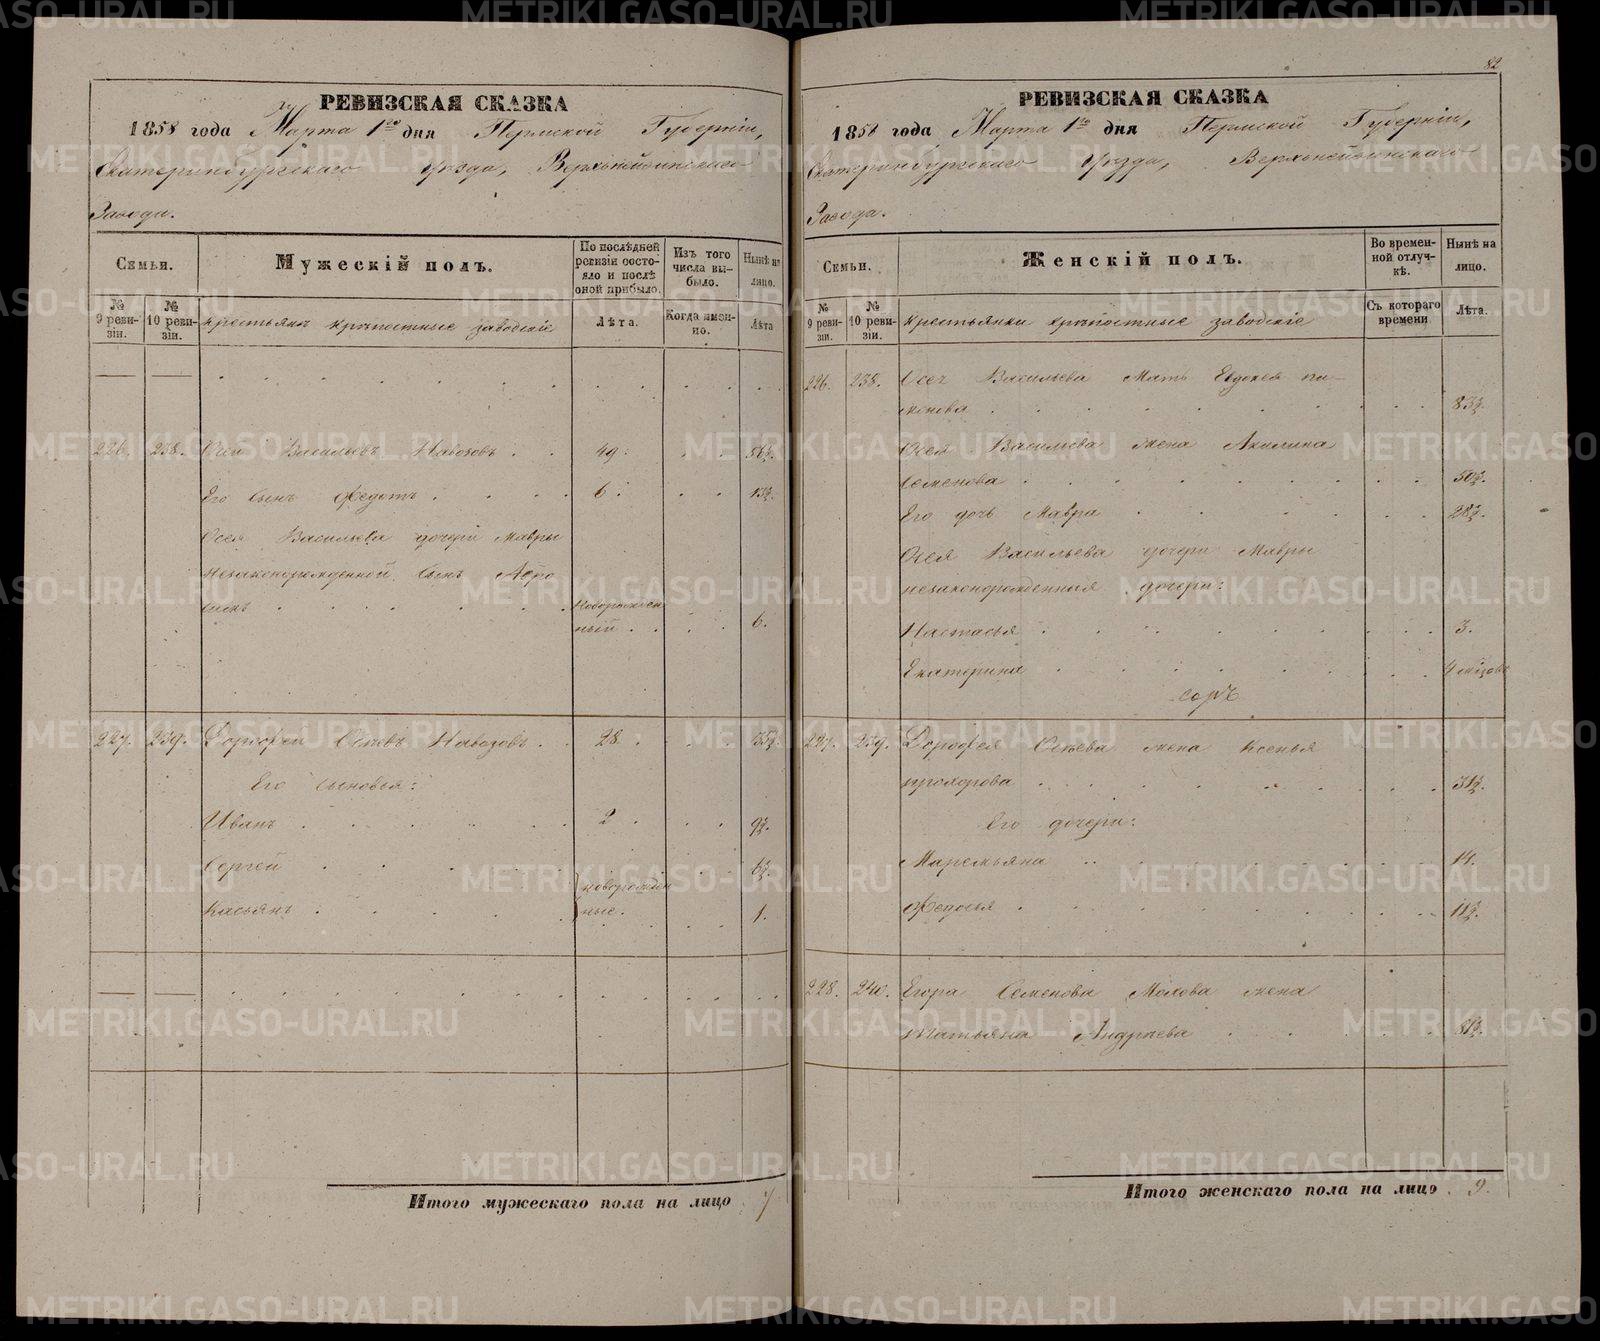 РЕВИЗСКАЯ СКАЗКА
1858 года Марта 1го дня Пермской Губерніи,
Екатеринбургскаго уѣзда, Верхнейвинскаго
Завода.
Семьи.
Мужескій полъ.
По послѣдней ревизіи состояло и послѣ оной прибыло.
Изъ того числа выбыло.
Нынѣ на лицо.
№ 9 ревизіи.
№ 10 ревизіи.
крестьянъ крѣпостные заводскіе
Лѣта.
Когда именно.
Лѣта
226. 238. Осей Васильевъ Навозовъ . . 49. 56½.
Его сынъ Федотъ . . . . 6. 13½.
Осея Васильева дочери Мавры
незаконорожденной сынъ Афро
синъ . . . . новорожден
ный . . . 6.
227. 239. Дорофей Осѣевъ Навозовъ . . 28. 35½.
Его сыновья:
Иванъ . . . . 2. 9½.
Сергей . . . . 6½.
новорожден
Касьянъ . . . . ные. 1.
Итого мужескаго пола на лицо 7
82
РЕВИЗСКАЯ СКАЗКА
1858 года Марта 1го дня Пермской Губерніи,
Екатеринбургскаго уѣзда, Верхнейвинскаго
Завода.
Семьи.
Женскій полъ.
Во временной отлучкѣ.
Нынѣ на лицо.
№ 9 ревизіи.
№ 10 ревизіи.
крестьянки крѣпостные заводскіе
Съ котораго времени
Лѣта.
226. 238. Осея Васильева Мать Евдокея
83½.
Осея Васильева жена Акилина
Семенова . . . . 50½.
Его дочь Мавра . . . . 28½.
Осея Васильева дочери Мавры
незаконорожденныя дочери:
Настасья . . . . 3.
Екатерина . . . . 4 мѣзовъ
227. 239. Дорофея Осѣева жена Ксенья
прохорова . . . . 31½.
Его дочери:
Маремьяна . . . . 14.
Федосья . . . . 11½.
228. 240. Егора Семенова Махова жена
Татьяна Андреева . . . . 81½.
Итого женскаго пола на лицо 9.
METRIKI.GASO-URAL.RU